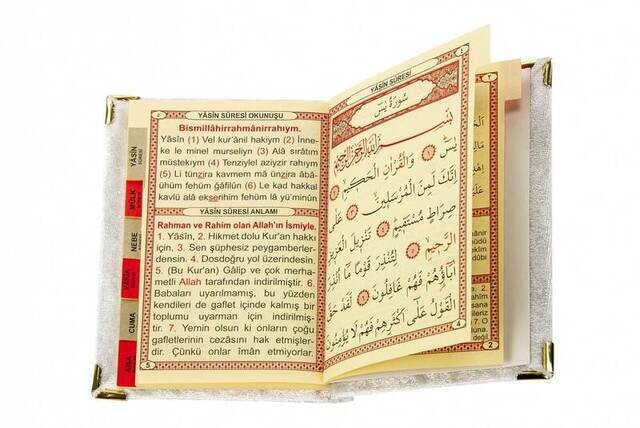 YÂSÎN SÛRESİ OKUNUŞU
Bismillâhirrahmânirrahıym.
Yâsîn (1) Vel kur'ânil hakiym (2) İnne-
ke le minel murseliyn (3) Alâ sırâtım
müstekıym (4) Tenziylel aziyzir rahıym
(5) Li tünzira kavmem mâ ünzira âbâ-
ühüm fehüm ğâfilûn (6) Le kad hakkal
kavlü alâ ekserihim fehüm lâ yü'minûn
YÂSÎN SÛRESİ ANLAMI
Rahman ve Rahim olan Allah'ın İsmiyle.
1. Yâsîn, 2. Hikmet dolu Kur'an hakkı
için, 3. Sen şüphesiz peygamberler-
densin. 4. Dosdoğru yol üzerindesin.
5. (Bu Kur'an) Gâlip ve çok merha-
metli Allah tarafından indirilmiştir. 6.
Babaları uyarılmamış, bu yüzden
kendileri de gaflet içinde kalmış bir
toplumu uyarman için indirilmiş-
tir. 7. Yemin olsun ki onların çoğu
gafletlerinin cezasını hak etmişler-
dir. Çünkü onlar îman etmiyorlar.
5
YÂSÎN
MÜLK
NEBE
CUMA
YÂSÎN SÛRESİ
سُورَةُ يٰسٓ
بِسْمِ اللّٰهِ الرَّحْمٰنِ الرَّحِيمِ
يٰسٓ ﴿١﴾ وَالْقُرْاٰنِ الْحَكِيمِ ﴿٢﴾
اِنَّكَ لَمِنَ الْمُرْسَلِينَ ﴿٣﴾ عَلٰى
صِرَاطٍ مُسْتَقِيمٍ ﴿٤﴾ تَنْزِيلَ الْعَزِيزِ
الرَّحِيمِ ﴿٥﴾ لِتُنْذِرَ قَوْمًا مَٓا اُنْذِرَ
اٰبَٓاؤُ۬هُمْ فَهُمْ غَافِلُونَ ﴿٦﴾ لَقَدْ حَقَّ
الْقَوْلُ عَلٰٓى اَكْثَرِهِمْ فَهُمْ لَا يُؤْمِنُونَ
4
2